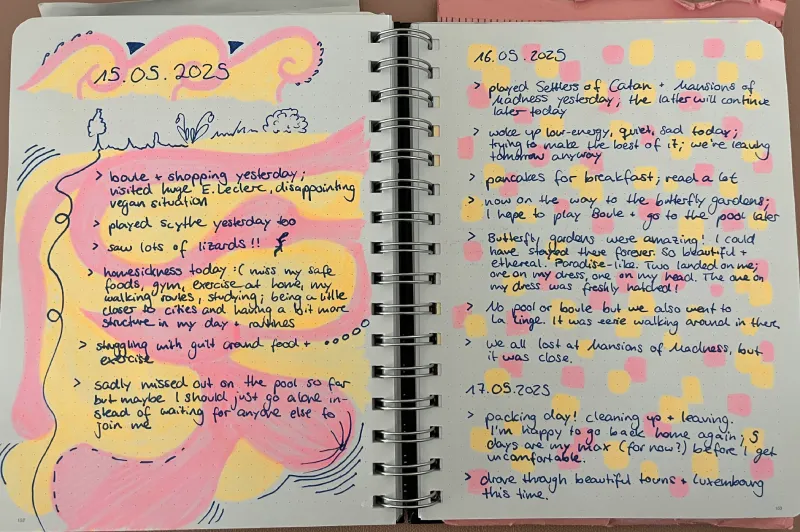 15.05.2025
> boule + shopping yesterday;
visited huge E.Leclerc, disappointing
vegan situation
> played scythe yesterday too
> saw lots of lizards!!
> homesickness today :( miss my safe
foods, gym, exercise at home, my
walking routes, studying; being a little
closer to cities and having a bit more
structure in my day + routines
> struggling with guilt around food +
exercise
> sadly missed out on the pool so far
but maybe I should just go alone in-
stead of waiting for anyone else to
join me
16.05.2025
> played Settlers of Catan + Mansions of
Madness yesterday; the latter will continue
later today
> woke up low-energy, quiet, sad today;
trying to make the best of it; we're leaving
tomorrow anyway
> pancakes for breakfast; read a lot
> now on the way to the butterfly gardens;
I hope to play Boule + go to the pool later
> Butterfly gardens were amazing! I could
have stayed there forever. So beautiful +
ethereal. Paradise-like. Two landed on me;
one on my dress, one on my head. The one on
my dress was freshly hatched!
> No pool or boule but we also went to
La Linge. It was eerie walking around in there
> We all lost at Mansions of Madness, but
it was close.
17.05.2025
> packing day! cleaning up + leaving.
I'm happy to go back home again; 5
days are my max (for now!) before I get
uncomfortable.
> drove through beautiful towns + Luxembourg
this time.